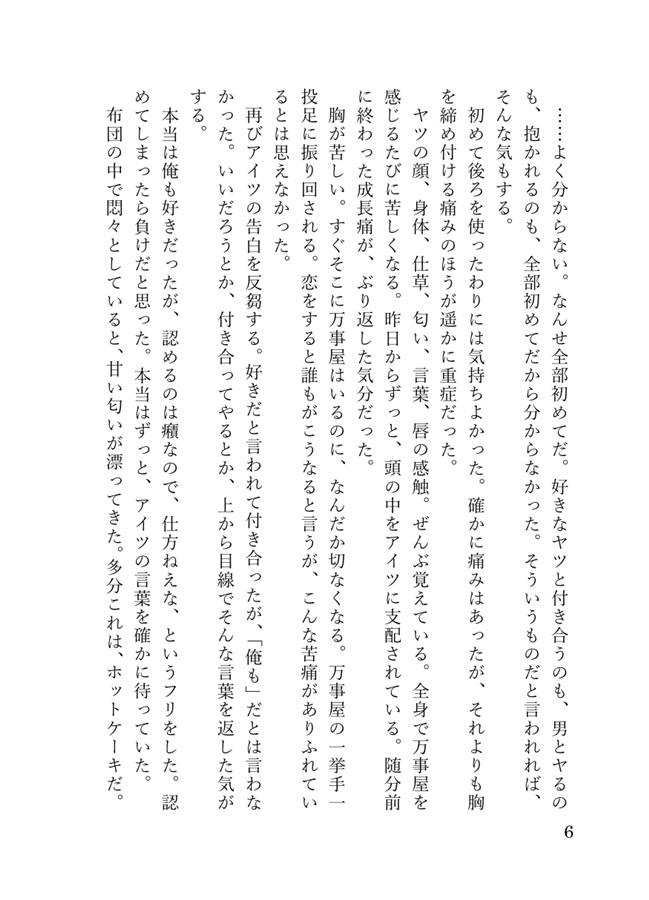 ……よく分からない。なんせ全部初めてだ。好きなヤツと付き合うのも、男とヤるの
も、抱かれるのも、全部初めてだから分からなかった。そういうものだと言われれば、
そんな気もする。
初めて後ろを使ったわりには気持ちよかった。確かに痛みはあったが、それよりも胸
を締め付ける痛みのほうが遥かに重症だった。
ヤツの顔、身体、仕草、匂い、言葉、唇の感触。ぜんぶ覚えている。全身で万事屋を
感じるたびに苦しくなる。昨日からずっと、頭の中をアイツに支配されている。随分前
に終わった成長痛が、ぶり返した気分だった。
胸が苦しい。すぐそこに万事屋はいるのに、なんだか切なくなる。万事屋の一挙手一
投足に振り回される。恋をすると誰もがこうなると言うが、こんな苦痛がありふれてい
るとは思えなかった。
再びアイツの告白を反芻する。好きだと言われて付き合ったが、「俺も」だとは言わな
かった。いいだろうとか、付き合ってやるとか、上から目線でそんな言葉を返した気が
する。
本当は俺も好きだったが、認めるのは癪なので、仕方ねえな、というフリをした。認
めてしまったら負けだと思った。本当はずっと、アイツの言葉を確かに待っていた。
布団の中で悶々としていると、甘い匂いが漂ってきた。多分これは、ホットケーキだ。
6